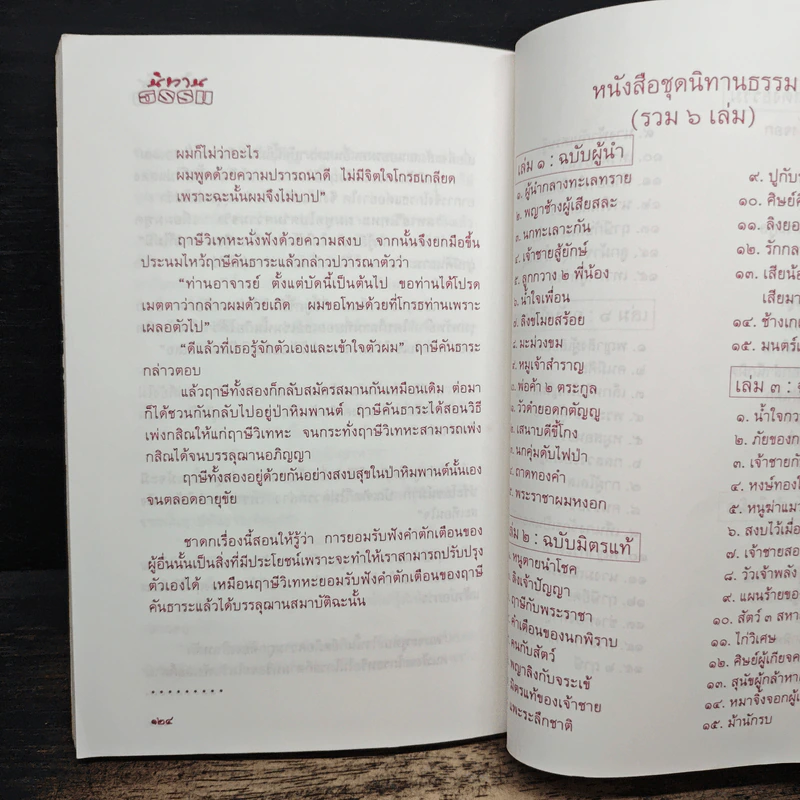 นิทาน
ธรรม
ผมก็ไม่ว่าอะไร
ผมพูดด้วยความปรารถนาดี ไม่มีจิตใจโกรธเกลียด
เพราะฉะนั้นผมจึงไม่บาป”
ฤาษีวิเทหะนั่งฟังด้วยความสงบ จากนั้นจึงยกมือขึ้น
ประนมไหว้ฤาษีคันธาระแล้วกล่าวปวารณาตัวว่า
“ท่านอาจารย์ ตั้งแต่บัดนี้เป็นต้นไป ขอท่านได้โปรด
เมตตาว่ากล่าวผมด้วยเถิด ผมขอโทษด้วยที่โกรธท่านเพราะ
เผลอตัวไป”
“ดีแล้วที่เธอรู้จักตัวเองและเข้าใจตัวผม” ฤาษีคันธาระ
กล่าวตอบ
แล้วฤาษีทั้งสองก็กลับสมัครสมานกันเหมือนเดิม ต่อมา
ก็ได้ชวนกันกลับไปอยู่ป่าหิมพานต์ ฤาษีคันธาระได้สอนวิธี
เพ่งกสิณให้แก่ฤาษีวิเทหะ จนกระทั่งฤาษีวิเทหะสามารถเพ่ง
กสิณได้จนบรรลุฌานอภิญญา
ฤาษีทั้งสองอยู่ด้วยกันอย่างสงบสุขในป่าหิมพานต์นั้นเอง
จนตลอดอายุขัย
ชาดกเรื่องนี้สอนให้รู้ว่า การยอมรับฟังคำตักเตือนของ
ผู้อื่นนั้นเป็นสิ่งที่มีประโยชน์เพราะจะทำให้เราสามารถปรับปรุง
ตัวเองได้ เหมือนฤาษีวิเทหะยอมรับฟังคำตักเตือนของฤาษี
คันธาระแล้วได้บรรลุฌานสมาบัติฉะนั้น
.........
๑๒๔
หนังสือชุดนิทานธรรม
(รวม ๖ เล่ม)
เล่ม ๑ : ฉบับผู้นำ
๑. ผู้นำกลางทะเลทราย
๒. พญาช้างผู้เสียสละ
๓. นกทะเลาะกัน
๔. เจ้าชายสู้ยักษ์
๕. ลูกกวาง ๒ พี่น้อง
๖. น้ำใจเพื่อน
๗. ลิงขโมยสร้อย
๘. มะม่วงขม
๙. หมูเจ้าสำราญ
๐. พ่อค้า ๒ ตระกูล
๑. วัวดำยอดกตัญญู
๒. เสนาบดีขี้โกง
นกคุ่มดับไฟป่า
ถาดทองคำ
พระราชาผมหงอก
เล่ม ๒ : ฉบับมิตรแท้
หนูตายนำโชค
ลิงเจ้าปัญญา
ฤาษีกับพระราชา
คำเตือนของนกพิราบ
คนกับสัตว์
พญาลิงกับจระเข้
มิตรแท้ของเจ้าชาย
แพะระลึกชาติ
๙. ปูกับ
๑๐. ศิษย์
๑๑. ลิงยอ
๑๒. รักกล
๑๓. เสียน้อ
เสียมา
๑๔. ช้างเก
๑๕. มนตร์เ
เล่ม ๓ :
๑. น้ำใจกว
๒. ภัยของก
๓. เจ้าชายกั
๔. หงษ์ทองใ
๕. หนูฆ่าแมว
๖. สงบไว้เมื่อ
๗. เจ้าชายสอ
๘. วัวเจ้าพลัง
๙. แผนร้ายของ
๑๐. สัตว์ ๓ สหา
๑๑. ไก่วิเศษ
๑๒. ศิษย์ผู้เกียจค
๑๓. สุนัขผู้กล้าหา
๑๔. หมาจิ้งจอกผู้เ
๑๕. ม้านักรบ